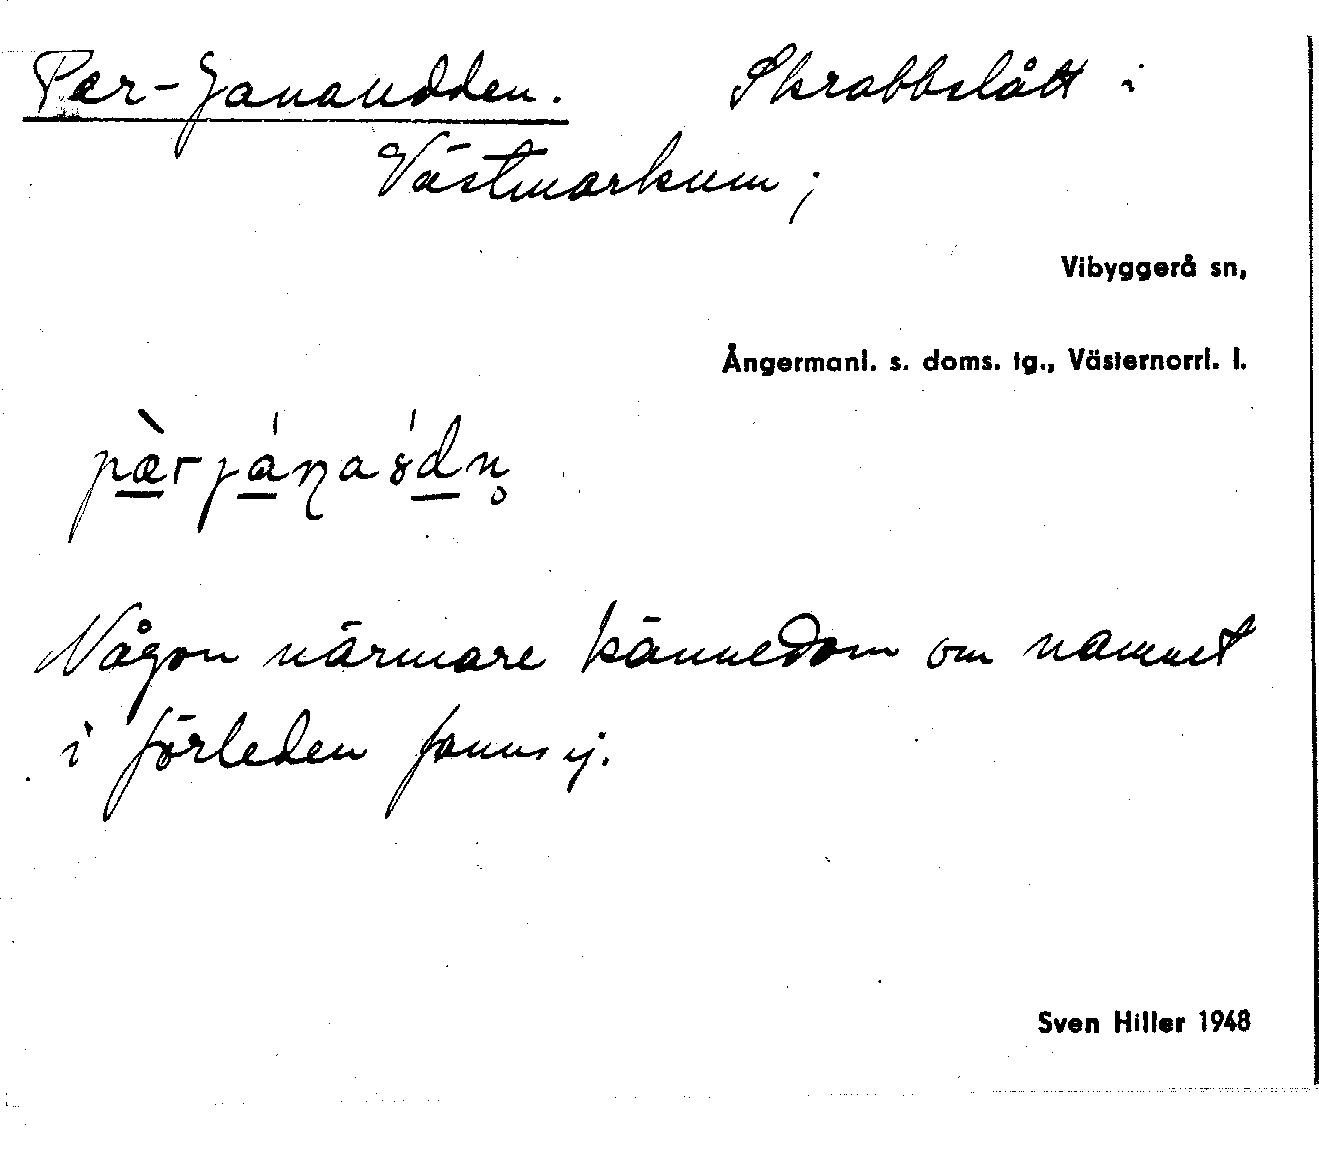 Per-Janaudden. Skrabbslått i
Västmarkum;
Vibyggerå sn,
Ångermanl. s. doms. tg., Västernorrl. l.
Någon närmare kännedom om namnet
i förleden fanns ej.
Sven Hiller 1948